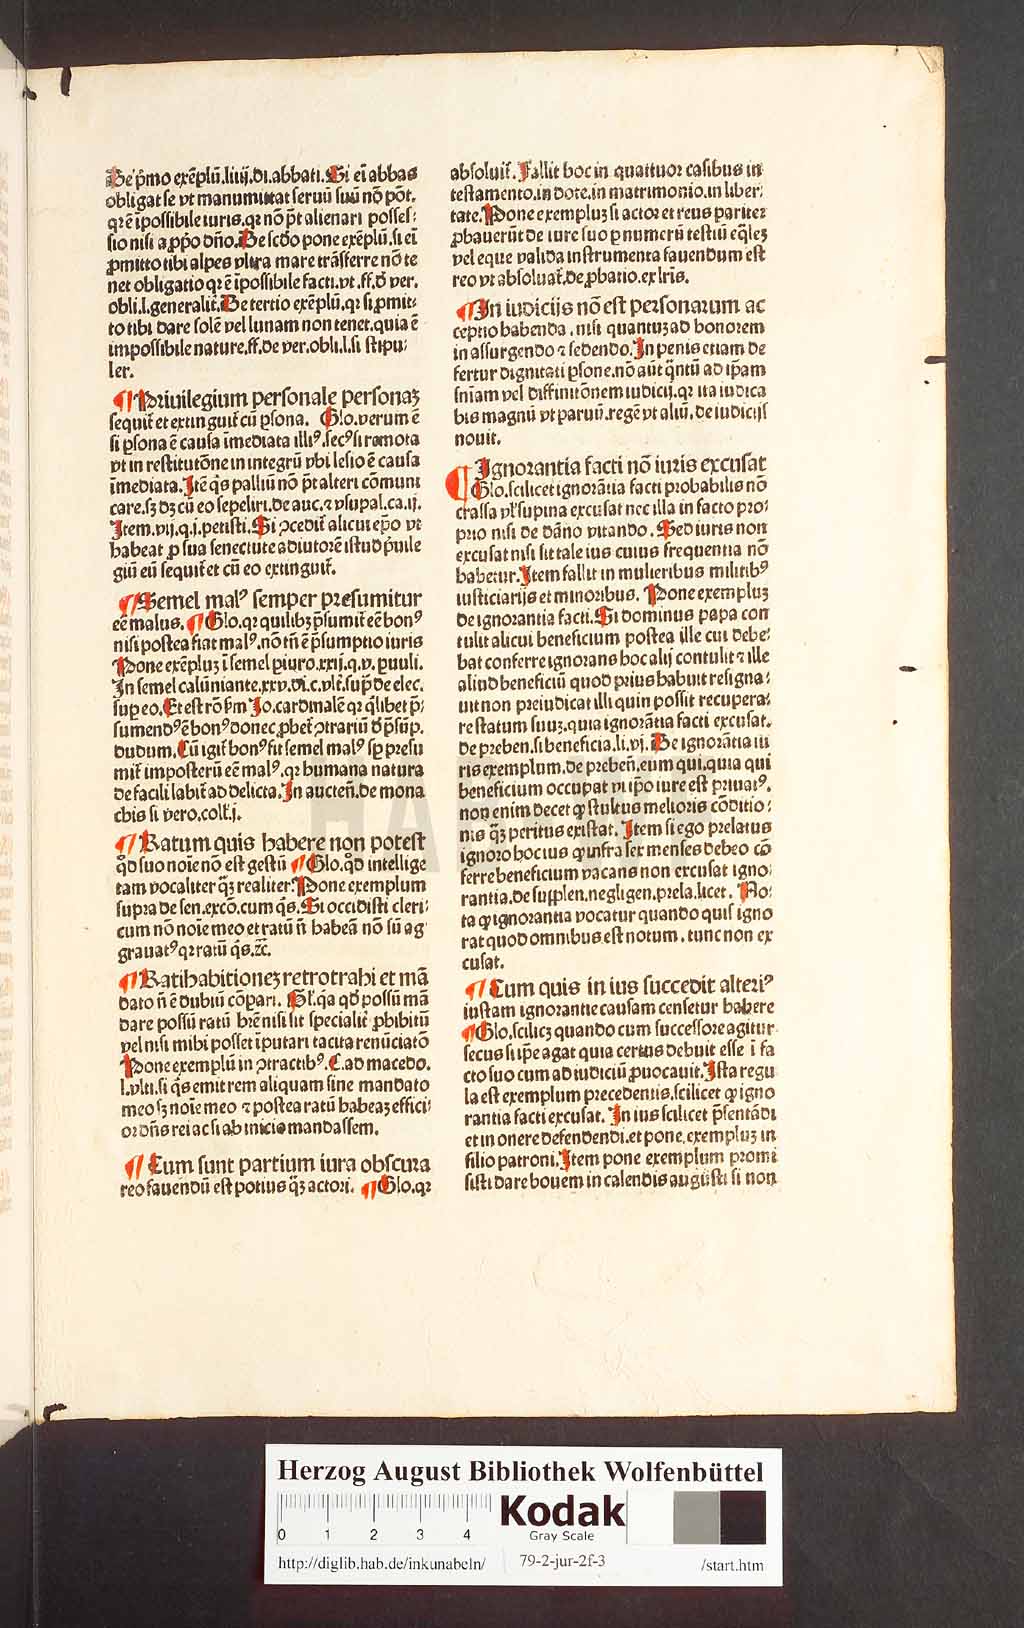 De p̄mo exēplū.liiij.di.abbati.Si em̄ abbas
obligat se vt manumittat seruū suū nō pōt.
qr̄ ē īpossibile iuris.qr̄ nō p̄t alienari posses⸗
sio nisi a ꝓpo dño.De scd̄o pone exēplū.si em̄
ꝓmitto tibi alpes vltra mare trāsferre nō te
net obligatio qr̄ ē īpossibile facti.vt.ff.d̄ ver.
obli.l.generalit̄.De tertio exēplū.qr̄ si ꝓmit⸗
to tibi dare solē vel lunam non tenet.quia ē
impossibile nature.ff.de ver.obli.l.si stipu⸗
ler.
¶ Priuilegium personale personaꝫ
sequit̄ et extinguit̄ cū ꝑsona. Glo.verum ē
si ꝑsona ē causa īmediata illiꝰ.secꝰ si remota
vt in restitutōne in integrū vbi lesio ē causa
īmediata.Itē q̄s palliū nō p̄t alteri cōmuni
care.sꝫ dꝫ cū eo sepeliri.de auc.⁊ vsu pal.ca.ij.
Item.vij.q.j.petisti.Si ꝯcedit̄ alicui ep̄o vt
habeat ꝓ sua senectute adiutorē istud p̄uile
giū eū sequit̄ et cū eo extinguit̄.
¶ Semel malꝰ semper presumitur
eē malus.¶ Glo.qr̄ quilibꝫ p̄sumit̄ eē bonꝰ
nisi postea fiat malꝰ.nō tn̄ ē p̄sumptio iuris
Pone exēpluꝫ ī semel ꝑiuro.xxij.q.v.paruuli.
In semel calūniante.xxv.di.c.vlt̄.sup̄ de elec.
sup eo.Et est rō ẜm Io.cardinalē qr̄ q̄libet p̄⸗
sumendꝰ ē bonꝰ donec ꝓbet̄ ꝯtrariū d̄ p̄sūp.
dudum.Cū igit̄ bonꝰ fit semel malꝰ sꝑ presu
mit̄ imposterū eē malꝰ.qr̄ humana natura
de facili labit̄ ad delicta.In aucten̄.de mona
chis si vero.colt̄.j.
¶ Ratum quis habere non potest
qd̄ suo noīe nō est gestū ¶ Glo.qd̄ intellige
tam vocaliter q̄ꝫ realiter.Pone exemplum
supra de sen.excō.cum q̄s.Si occidisti cleri⸗
cum nō noīe meo et ratū n̄ habeā nō sū ag⸗
grauatꝰ qr̄ ratū q̄s.⁊c̄.
¶ Ratihabitioneꝫ retrotrahi et mā
dato n̄ ē dubiū cōpari. Pl̄.qa qd̄ possū mā
dare possū ratū hr̄e nisi sit specialit̄ ꝓhibitū
vel nisi mihi posset īputari tacita renūciatō
Pone exemplū in ꝯtractibꝰ.C.ad macedo.
l.vlti.si q̄s emit rem aliquam sine mandato
meo sꝫ noīe meo ⁊ postea ratū habeaꝫ effici⸗
or dn̄s rei ac si ab inicio mandassem.
¶ Cum sunt partium iura obscura
reo fauendū est potius q̄ꝫ actori. ¶ Glo.qr̄
absoluit̄.Fallit hoc in quattuor casibus in
testamento.in dote.in matrimonio.in liber⸗
tate.Pone exempluꝫ si actor et reus pariter
ꝓbauerūt de iure suo ꝑ numerū testiū eq̄leꝫ
vel eque valida instrumenta fauendum est
reo vt absoluat̄.de ꝓbatio.ex lr̄is.
¶ In iudicijs nō est personarum ac
ceptio habenda.nisi quantuꝫ ad honorem
in assurgendo ⁊ sedendo.In penis etiam de
fertur dignitati ꝑsone.nō aūt q̄ntū ad ip̄am
sn̄iam vel diffinitōnem iudicij.qr̄ ita iudica
bis magnū vt paruū.regē vt aliū.de iudicijs
nouit.
¶ Ignorantia facti nō iuris excusat
Glo.scilicet ignorātia facti probabilis nō
crassa vl̄ supina excusat nec illa in facto pro⸗
prio nisi de dāno vitando. Sed iuris non
excusat nisi sit tale ius cuius frequentia nō
habetur.Item fallit in mulieribus militibꝰ
iusticiarijs et minoribus. Pone exempluꝫ
de ignorantia facti.Si dominus papa con
tulit alicui beneficium postea ille cui debe⸗
bat conferre ignorans hoc alij contulit ⁊ ille
aliud beneficiū quod prius habuit resigna⸗
uit non preiudicat illi quin possit recupera⸗
re statum suuꝫ.quia ignorātia facti excusat.
de preben.si beneficia.li.vj. De ignorātia iu
ris exemplum.de prebeñ.cum qui.quia qui
beneficium occupat vt ip̄o iure est priuatꝰ.
non enim decet ꝙ stultus melioris cōditio⸗
nis q̄ꝫ peritus existat. Item si ego prelatus
ignoro hoc ius ꝙ infra sex menses debeo cō
ferre beneficium vacans non excusat igno⸗
rantia.de supplen.negligen.prela.licet. No⸗
ta ꝙ ignorantia vocatur quando quis igno
rat quod omnibus est notum.tunc non ex
cusat.
¶ Cum quis in ius succedit alteriꝰ
iustam ignorantie causam censetur habere
¶ Glo.scilicꝫ quando cum successore agitur
secus si ip̄e agat quia certus debuit esse ī fa
cto suo cum ad iudiciū ꝓuocauit.Ista regu
la est exemplum precedentis.scilicet ꝙ igno
rantia facti excusat. In ius scilicet p̄sentādi
et in onere defendendi.et pone exempluꝫ in
filio patroni.Item pone exemplum promi
sisti dare bouem in calendis augusti si non
HAB WF
Herzog August Bibliothek Wolfenbüttel
0 1 2 3 4
Kodak
Gray Scale
http://diglib.hab.de/inkunabeln/ 79-2-jur-2f-3 /start.htm